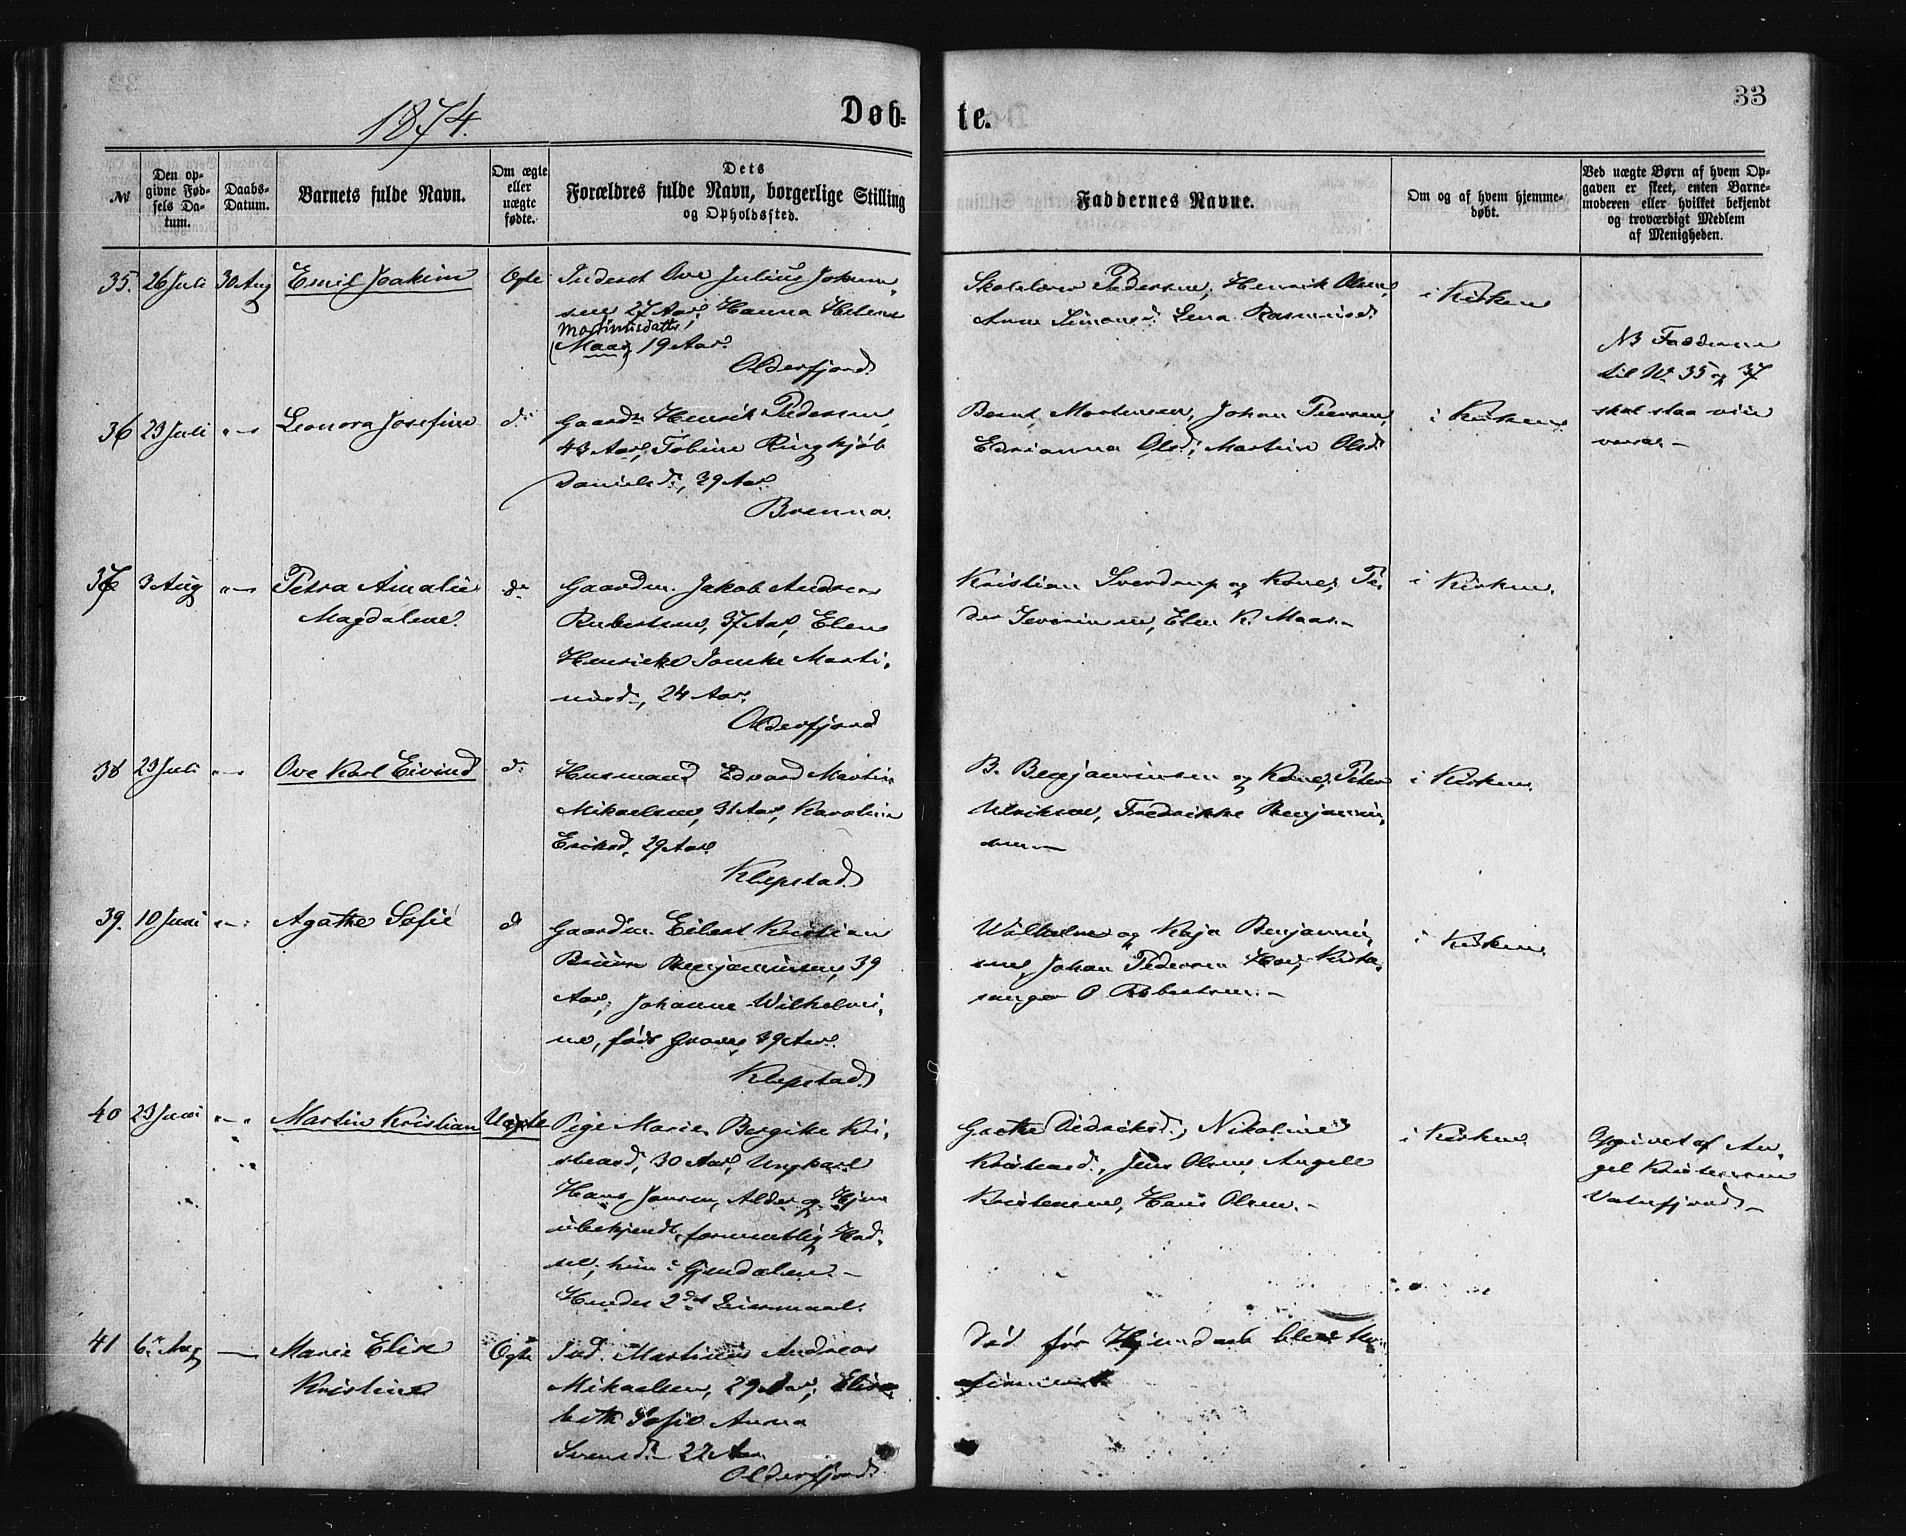 33
1874.
Døb-
te.
№
Den op-
givne Fød-
sels Da-
tum.
Daabs-
Datum.
Barnets fulde Navn.
Om ægte
eller
uægte
fødte.
Dets
Forældres fulde Navn, borgerlige Stilling
og Opholdssted.
Faddernes Navne.
Om og af hvem hjemme-
døbt.
Ved uægte Børn af hvem Op-
gaven er skeet, enten Barne-
moderen eller hvilket bekjendt
og troværdigt Medlem
af Menigheden.
35. 26 Juli 30 Aug Emil Joakim Ægte Inderst Ove Julius Johan-
sen 27 Aar, Hanna Helene
Martinusdatter
(Maar) 19 Aar.
Olderfjord.
Skolelærer Pedersen, Henrik Olsen,
Anne Simonsd. Lena Rasmusd.
i Kirken
NB Fadderne
til № 35 og 37
skal staa vice
versa.-
36 23 Juli Leonora Josefine do Gaardm Henrik Pedersen,
43 Aar, Tobine Ringkjøb
Danielsd., 39 Aar
Brenna.
Bernt Mortensen, Johan Piersen,
Edrianna Olsd., Martine Olsd.
i Kirken
37 3 Aug Petra Amalie
Magdalene.
do Gaardm. Jakob Andreas
Robertsen, 37 Aar, Elen
Henrikke Marti-
nusd., 24 Aar.
Olderfjord
Kristian Sverdrup og Kone, Pe-
der Severinsen, Elen K. Maar.-
i Kirken.
38 23 Juli Ove Karl Eivind do Husmand Edvard Martin
Mikaelsen, 31 Aar, Karoline
Eriksd. 29 Aar.
Klepstad.
B. Benjaminsen og Kone, Peter
Ulriksen, Fredrikke Benjamin-
sen.-
i Kirken.
39. 10 Juni Agathe Sofie d Gaardm. Eilert Kristian
Benjaminsen, 39
Aar, Johanne Wilhelmi-
ne, født 39 Aar.
Klepstad.
Wilhelm og Kaja Benjamin-
sen, Johan Pedersen Kirke-
sanger O Robertsen.-
i Kirken.
40 23 Juni Martin Kristian Uægte Pige Maria Bergike Kri-
stensd., 30 Aar, Ungkarl
Hans Jensen, Alder og Hjem
ubekjendt, formentlig Had-
sel, hun i Gjendalen.-
Hendes 2det Leiermaal.
Grethe Didriksd., Nikoline
Kristensd., Jens Olsen, Angell
Kristensen, Hans Olsen.-
i Kirken.
Opgivet af An-
gel Kristensen
Vatnfjord.-
41 6 Aug Marie Elise
Kristine
Ægte Ind. Martinus Andreas
Mikaelsen, 29 Aar, Elisa-
beth Sofie Anna
Svensd. 22 Aar
Olderfjord.
Død før Hjemdaab blev